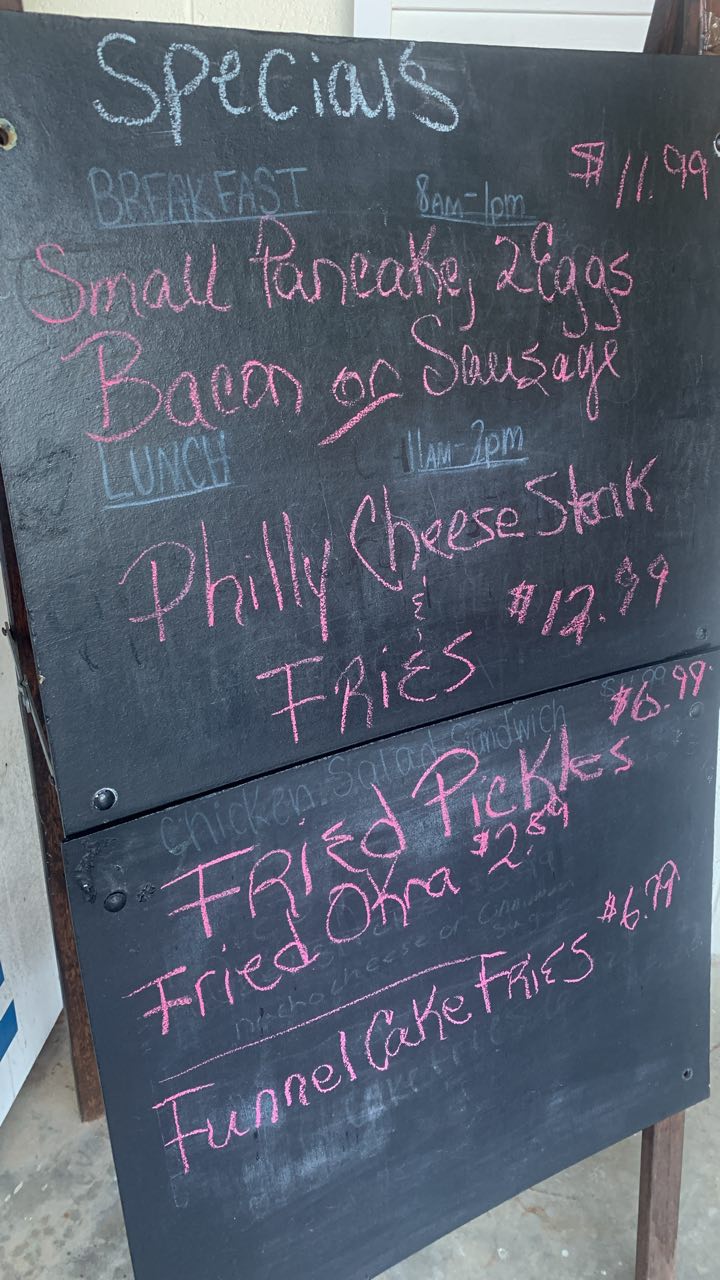 Specials
BREAKFAST 8AM-1pm $11.99
Small Pancake, 2 Eggs
Bacon or Sausage
LUNCH 11AM-2pm
Philly Cheese Steak
&
FRIES $12.99
Chicken Salad Sandwich
$6.99
FRiEd PicKlEs
Fried Okra $2.89
nacho cheese or Cinnamon
Funnel Cake FRiES $6.79